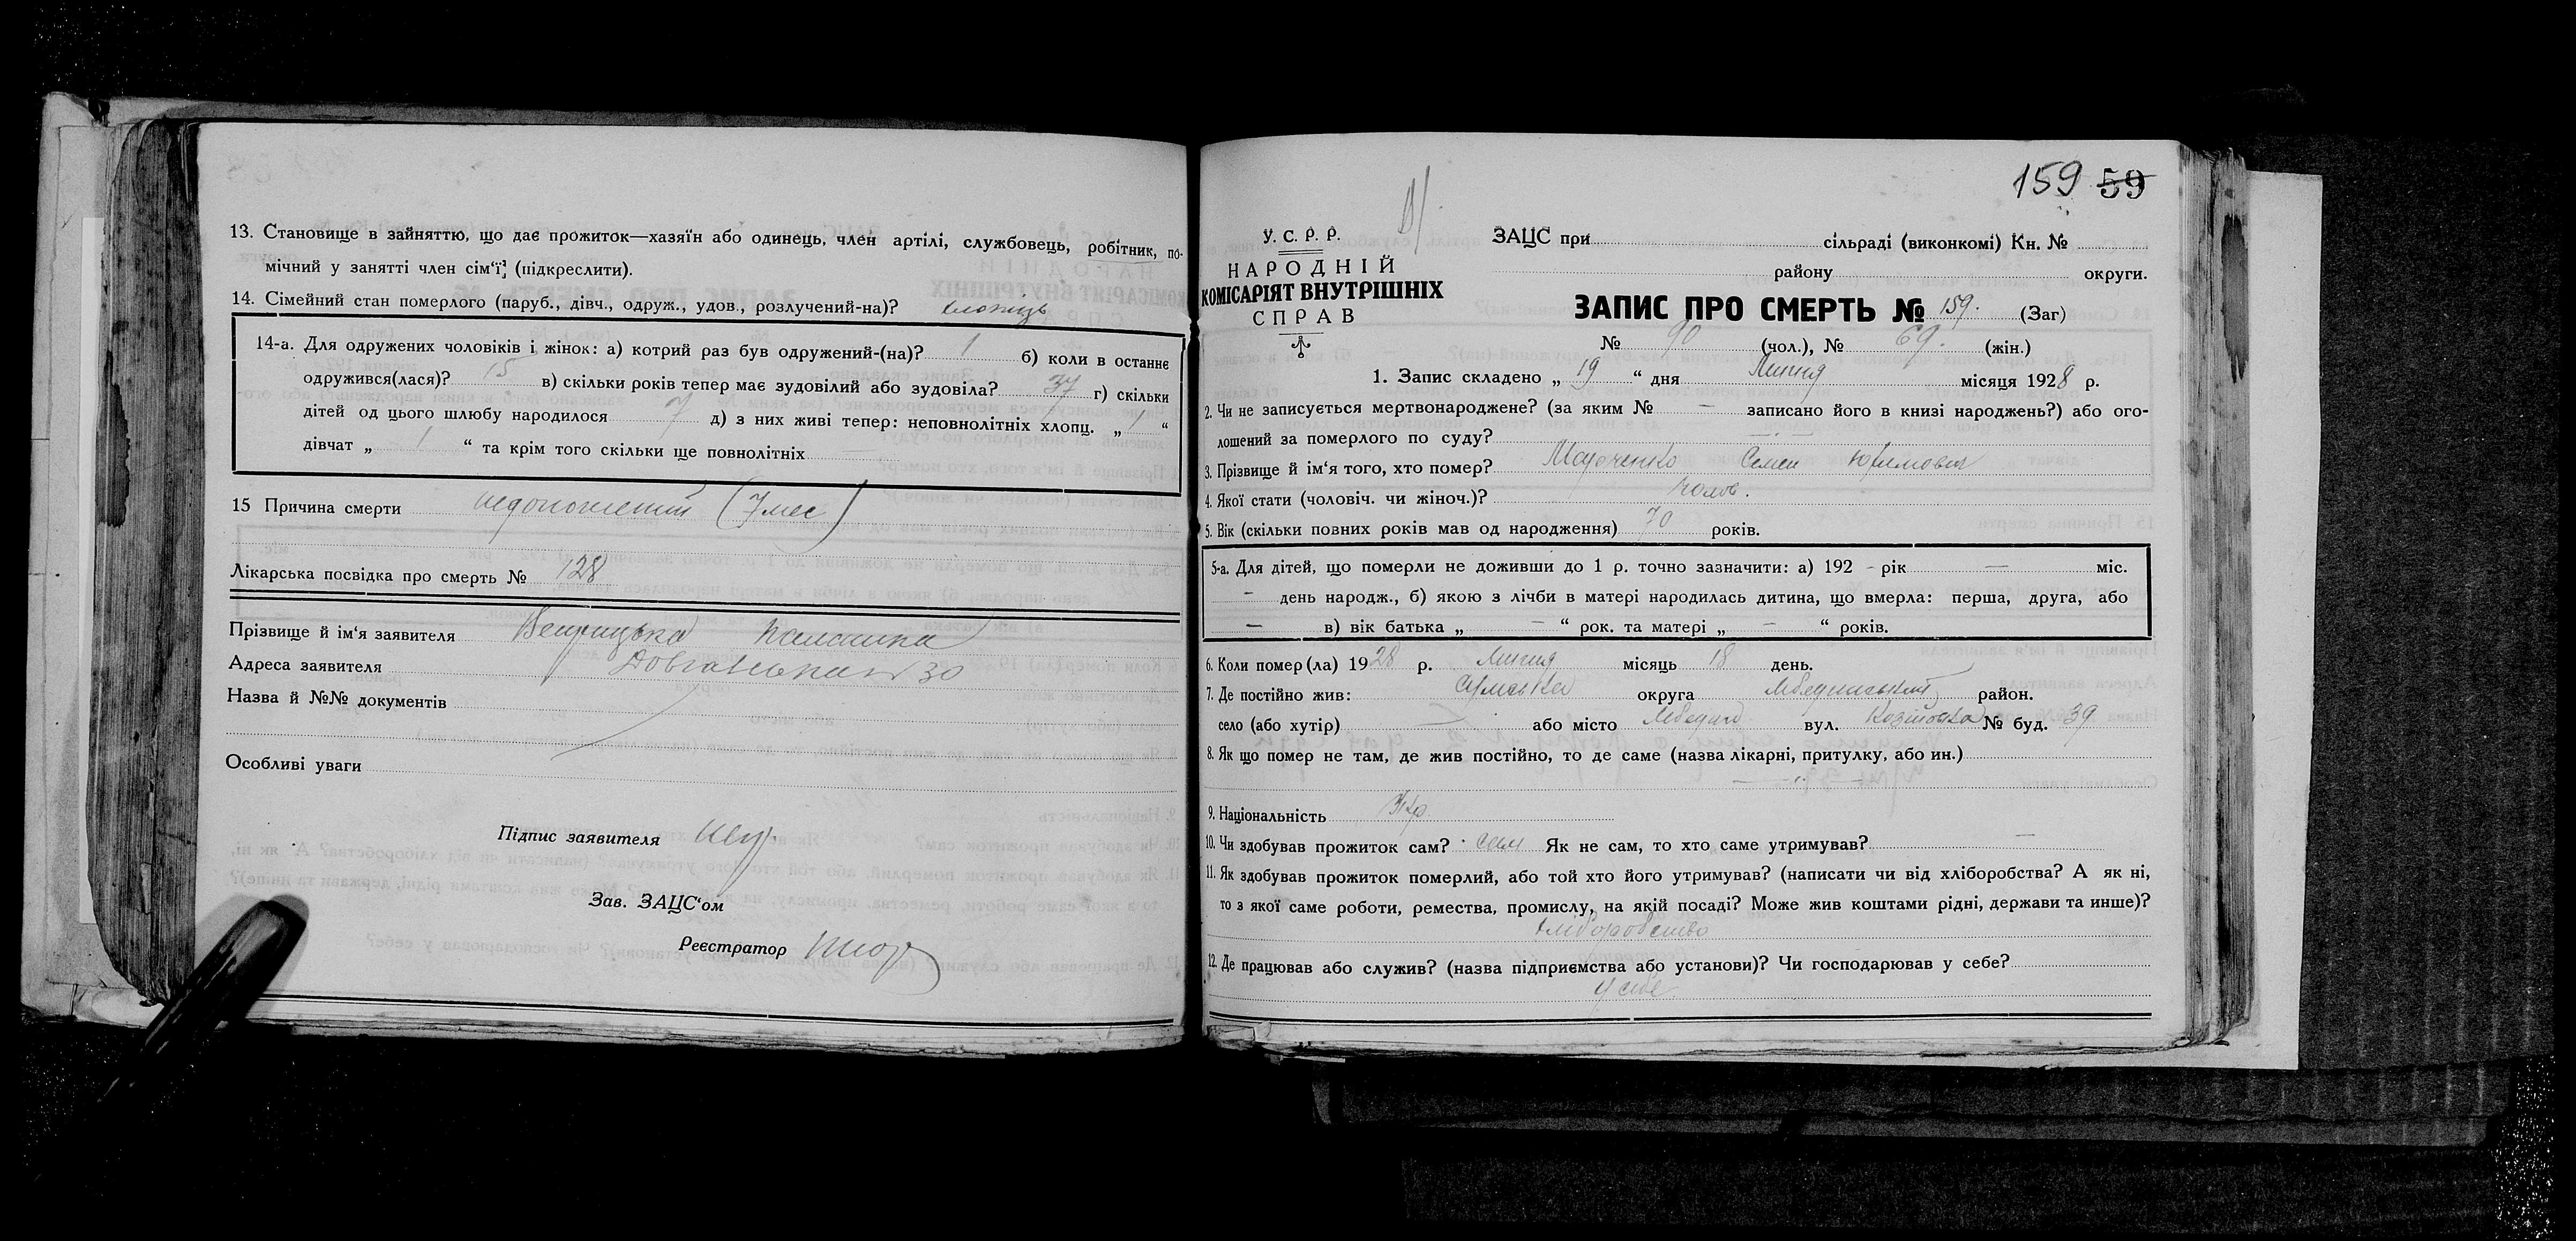 13. Становище в зайняттю, що дає прожиток—хазяїн або одинець, член артілі, службовець, робітник, по-
мічний у занятті член сім‘ї (підкреслити).
14. Сімейний стан померлого (паруб., дівч., одруж., удов., розлучений-на)? хлопець
14-а. Для одружених чоловіків і жінок: а) котрий раз був одружений-(на)? 1 б) коли в останнє
одружився(лася)? 15 в) скільки років тепер має зудовілий або зудовіла? 37 г) скільки
дітей од цього шлюбу народилося 7 д) з них живі тепер: неповнолітніх хлопц. „ 1 “
дівчат „ 1 “ та крім того скільки ще повнолітніх —
15 Причина смерти недоношений (7 мес)
Лікарська посвідка про смерть № 128
Прізвище й ім‘я заявителя
Адреса заявителя 30
Назва й №№ документів
Особливі уваги
Підпис заявителя
Зав. ЗАЦС‘ом
Реєстратор
159 59
У. С. Р. Р.
НАРОДНІЙ
КОМІСАРІЯТ ВНУТРІШНІХ
СПРАВ
ЗАЦС при сільраді (виконкомі) Кн. №
району округи.
ЗАПИС ПРО СМЕРТЬ № 159. (Заг)
№ 90 (чол.), № 69. (жін.)
1. Запис складено „ 19 “ дня Липня місяця 1928 р.
2. Чи не записується мертвонароджене? (за яким № — записано його в книзі народжень?) або ого-
лошений за померлого по суду? —
3. Прізвище й ім‘я того, хто помер? Семен Юхимович
4. Якої стати (чоловіч. чи жіноч.)? чолов.
5. Вік (скільки повних років мав од народження) 70 років.
5-а. Для дітей, що померли не доживши до 1 р. точно зазначити: а) 192 - рік — міс.
- день народж., б) якою з лічби в матері народилась дитина, що вмерла: перша, друга, або
— в) вік батька „ — “ рок. та матері „ — “ років.
6. Коли помер(ла) 1928 р. Липня місяць 18 день.
7. Де постійно жив: Сумська округа Лебединський район.
село (або хутір) — або місто Лебедин вул. № буд. 39
8. Як що помер не там, де жив постійно, то де саме (назва лікарні, притулку, або ин.)
9. Національність Укр.
10. Чи здобував прожиток сам? сам Як не сам, то хто саме утримував? —
11. Як здобував прожиток померлий, або той хто його утримував? (написати чи від хліборобства? А як ні,
то з якої саме роботи, ремества, промислу, на якій посаді? Може жив коштами рідні, держави та инше)?
хліборобство
12. Де працював або служив? (назва підприємства або установи)? Чи господарював у себе?
у себе